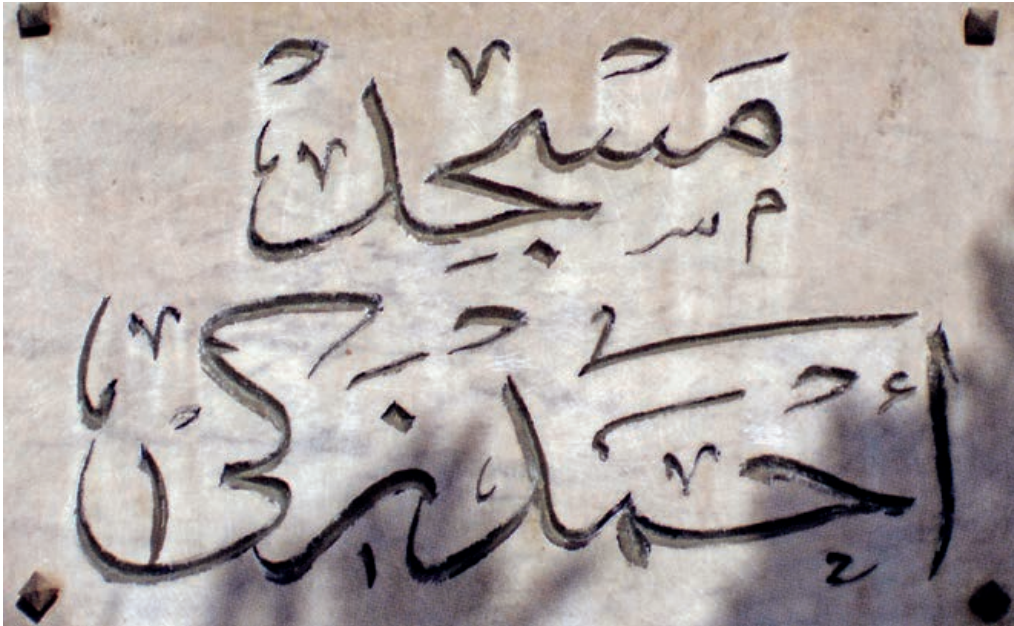 مَسْجِدْ
أَحْمَد زَكى